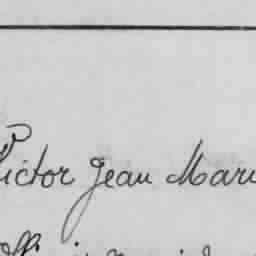 Victor Jean Mari